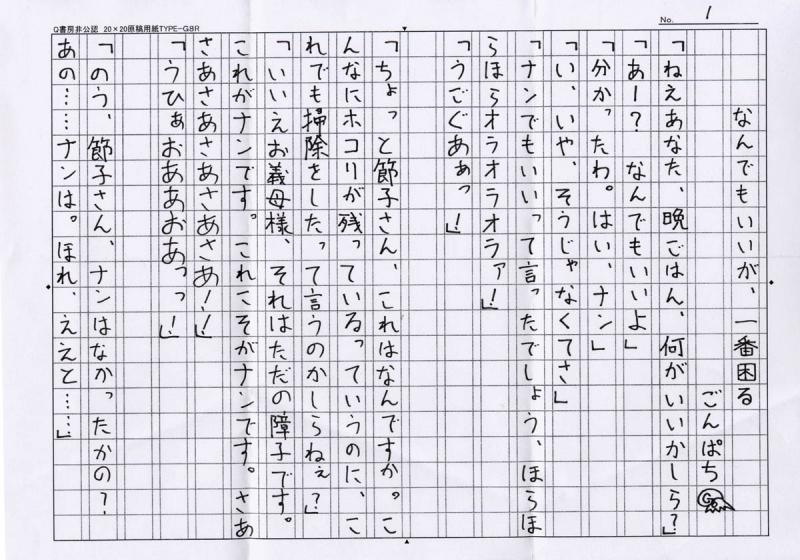 Q書房非公認 20×20原稿用紙TYPE-GBR
No. 1
なんでもいいが、一番困る
ごんぱち
「ねえあなた、晩ごはん、何がいいかしら?」
「あー? なんでもいいよ」
「分かったわ。はい、ナン」
「い、いや、そうじゃなくてさ」
「ナンでもいいって言ったでしょう、ほらほ
らほらオラオラオラァ!」
「うごぐあぁっ!」
「ちょっと節子さん、これはなんですか。こ
んなにホコリが残っているっていうのに、こ
れでも掃除をしたって言うのかしらねぇ?」
「いいえお義母様、それはただの障子です。
これがナンです。これこそがナンです。さあ
さあさあさあさあさあ!!」
「うひぁぉああおあっっ!」
「のう、節子さん、ナンはなかったかの?
あの……ナンは。ほれ、ええと……」